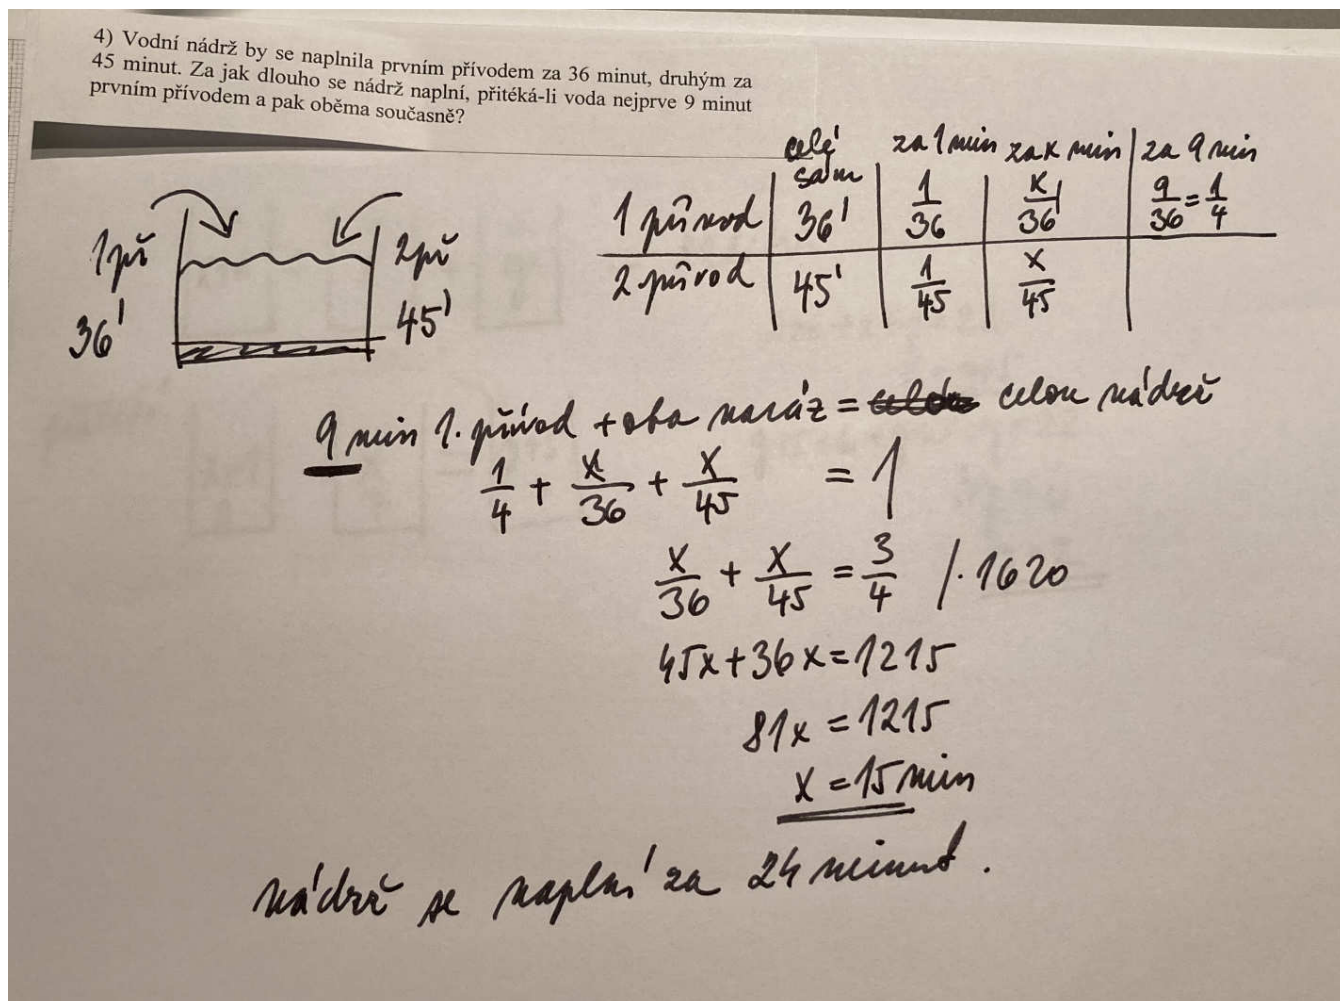 4) Vodní nádrž by se naplnila prvním přívodem za 36 minut, druhým za
45 minut. Za jak dlouho se nádrž naplní, přitéká-li voda nejprve 9 minut
prvním přívodem a pak oběma současně?
celé sám | za 1 min | za x min | za 9 min
1 přívod | 36' | 1/36 | x/36 | 9/36 = 1/4
2 přívod | 45' | 1/45 | x/45
1 př 2 př
36' 45'
9 min 1. přívod + oba naráz = celou nádrž
1/4 + x/36 + x/45 = 1
x/36 + x/45 = 3/4 /. 1620
45x + 36x = 1215
81x = 1215
x = 15 min
nádrž se naplní za 24 minut.